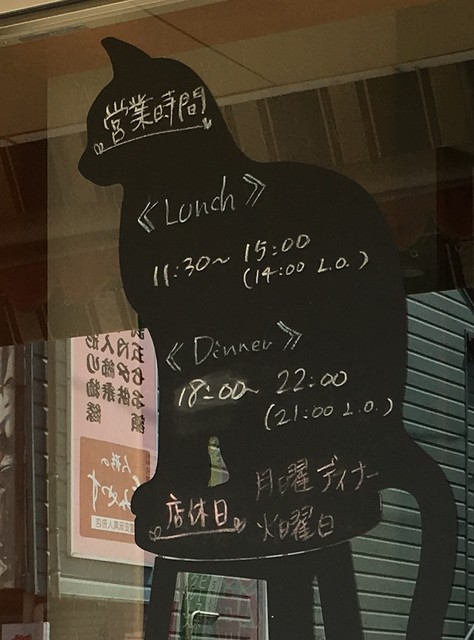 営業時間
《Lunch》
11:30~ 15:00
(14:00 L.O.)
《Dinner》
18:00~ 22:00
(21:00 L.O.)
店休日
月曜ディナー
火曜日